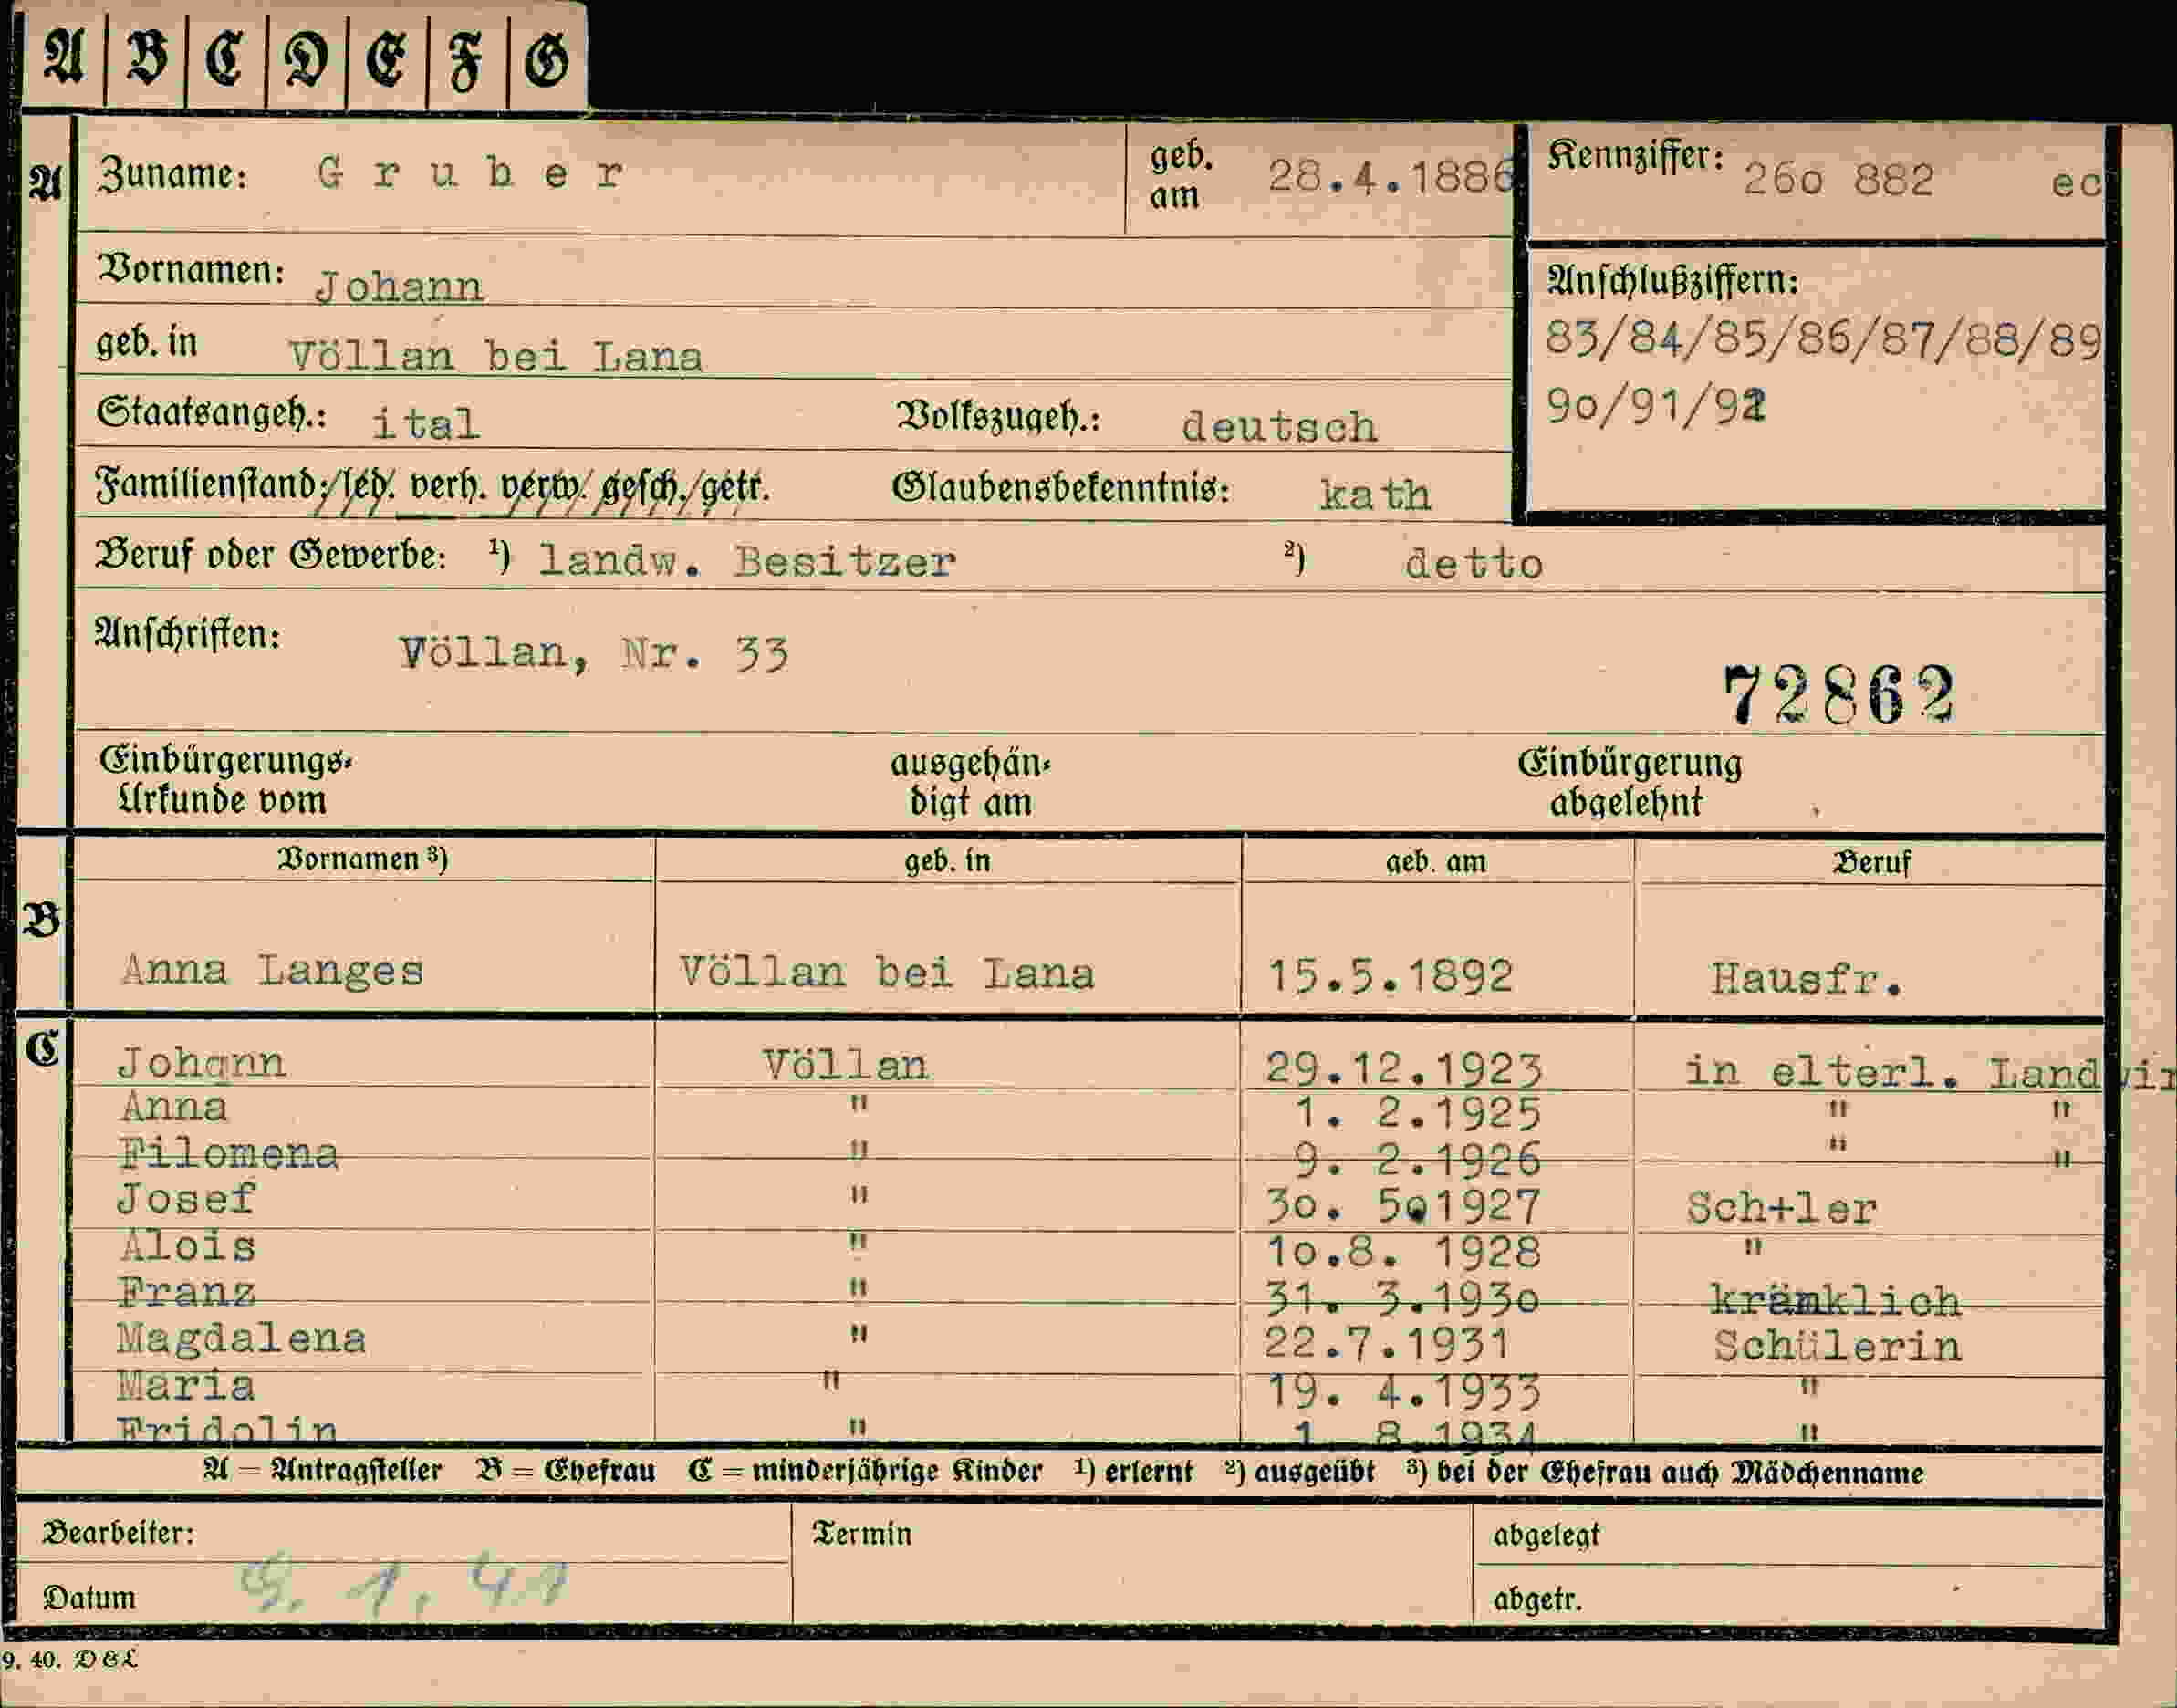 A B C D E F G
A Zuname: Gruber geb. am 28.4.1886 Kennziffer: 26o 882 ec
Vornamen: Johann
Anschlußziffern:
geb. in Völlan bei Lana
83/84/85/86/87/88/89
Staatsangeh.: ital Volkszugeh.: deutsch
9o/91/92
Familienstand: led. verh. verw. gesch./getr. Glaubensbekenntnis: kath
Beruf oder Gewerbe: ¹) landw. Besitzer ²) detto
Anschriften: Völlan, Nr. 33
72862
Einbürgerungs- ausgehän- Einbürgerung
Urkunde vom digt am abgelehnt
Vornamen ³) geb. in geb. am Beruf
B
Anna Langes Völlan bei Lana 15.5.1892 Hausfr.
C
Johann Völlan 29.12.1923 in elterl. Landwir
Anna " 1. 2.1925 " "
Filomena " 9. 2.1926 " "
Josef " 30. 5.1927 Sch+ler
Alois " 1o.8. 1928 "
Franz " 31. 3.193o kränklich
Magdalena " 22.7.1931 Schülerin
Maria " 19. 4.1933 "
Fridolin " 1. 8.1934 "
A = Antragsteller B = Ehefrau C = minderjährige Kinder ¹) erlernt ²) ausgeübt ³) bei der Ehefrau auch Mädchenname
Bearbeiter: Termin abgelegt
Datum 9. 1. 41 abgetr.
9. 40. D&L